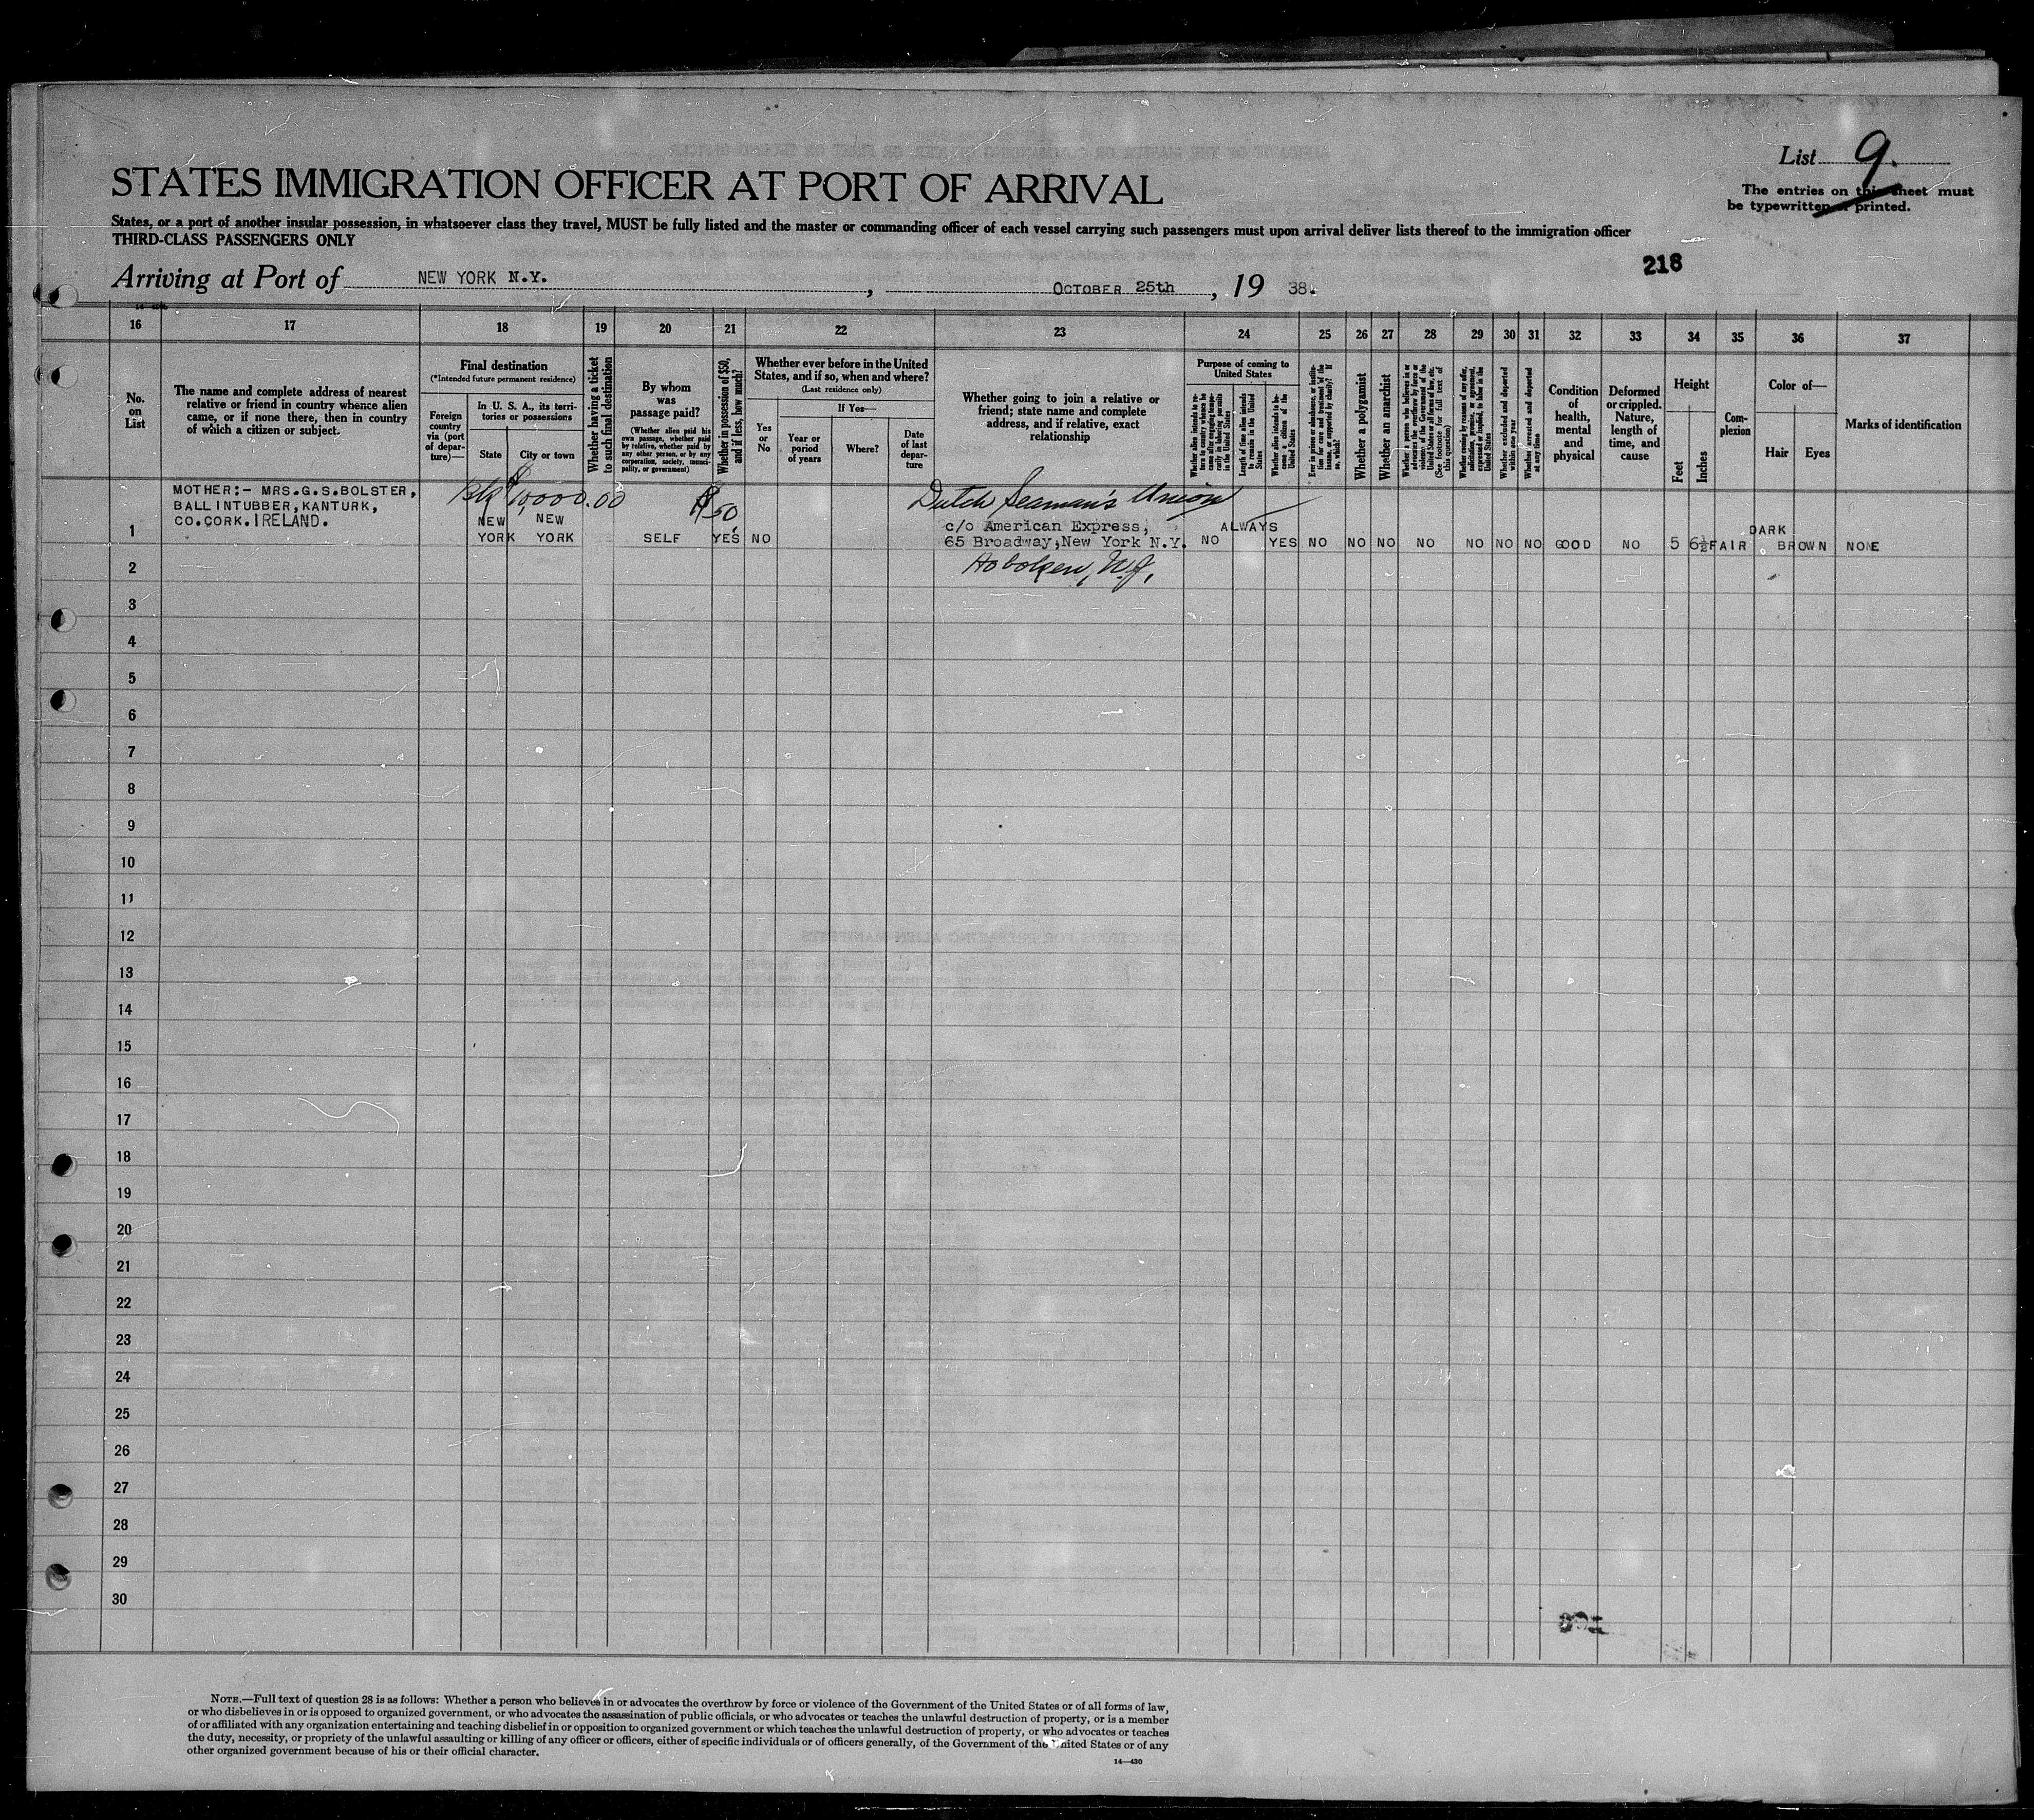 List 9.
STATES IMMIGRATION OFFICER AT PORT OF ARRIVAL
The entries on this sheet must
be typewritten or printed.
States, or a port of another insular possession, in whatsoever class they travel, MUST be fully listed and the master or commanding officer of each vessel carrying such passengers must upon arrival deliver lists thereof to the immigration officer
THIRD-CLASS PASSENGERS ONLY
218
Arriving at Port of NEW YORK N.Y. , OCTOBER 25th , 19 38.
16 17 18 19 20 21 22 23 24 25 26 27 28 29 30 31 32 33 34 35 36 37
No. on List
The name and complete address of nearest
relative or friend in country whence alien
came, or if none there, then in country
of which a citizen or subject.
Final destination
(*Intended future permanent residence)
Foreign country via (port of departure)—
In U. S. A., its territories or possessions
State
City or town
Whether having a ticket to such final destination
By whom was passage paid?
(Whether alien paid his own passage, whether paid by relative, whether paid by any other person, or by any corporation, society, municipality, or government)
Whether in possession of $50, and if less, how much?
Whether ever before in the United
States, and if so, when and where?
(Last residence only)
Yes or No
If Yes—
Year or period of years
Where?
Date of last departure
Whether going to join a relative or
friend; state name and complete
address, and if relative, exact
relationship
Purpose of coming to
United States
Whether alien intends to return to country whence he came after engaging temporarily in laboring pursuits in the United States
Length of time alien intends to remain in the United States
Whether alien intends to become a citizen of the United States
Ever in prison or almshouse, or institution for care and treatment of the insane, or supported by charity? If so, which?
Whether a polygamist
Whether an anarchist
Whether a person who believes in or advocates the overthrow by force or violence of the Government of the United States or all forms of law, etc. (See footnote for full text of this question)
Whether coming by reasons of any offer, solicitation, promise, or agreement, expressed or implied, to labor in the United States
Whether excluded and deported within one year
Whether arrested and deported at any time
Condition of health, mental and physical
Deformed or crippled. Nature, length of time, and cause
Height
Feet
Inches
Complexion
Color of—
Hair
Eyes
Marks of identification
MOTHER:- MRS.G.S.BOLSTER,
BALLINTUBBER,KANTURK,
CO.CORK.IRELAND.
$10,000.00
$50
Dutch Seaman's Union
1 NEW YORK NEW YORK SELF YES NO
c/o American Express,
65 Broadway,New York N.Y.
NO ALWAYS YES NO NO NO NO NO NO NO GOOD NO 5 6½ FAIR DARK BROWN NONE
Hoboken, N.J.
2
3
4
5
6
7
8
9
10
11
12
13
14
15
16
17
18
19
20
21
22
23
24
25
26
27
28
29
30
NOTE.—Full text of question 28 is as follows: Whether a person who believes in or advocates the overthrow by force or violence of the Government of the United States or of all forms of law,
or who disbelieves in or is opposed to organized government, or who advocates the assassination of public officials, or who advocates or teaches the unlawful destruction of property, or is a member
of or affiliated with any organization entertaining and teaching disbelief in or opposition to organized government or which teaches the unlawful destruction of property, or who advocates or teaches
the duty, necessity, or propriety of the unlawful assaulting or killing of any officer or officers, either of specific individuals or of officers generally, of the Government of the United States or of any
other organized government because of his or their official character.
14—430